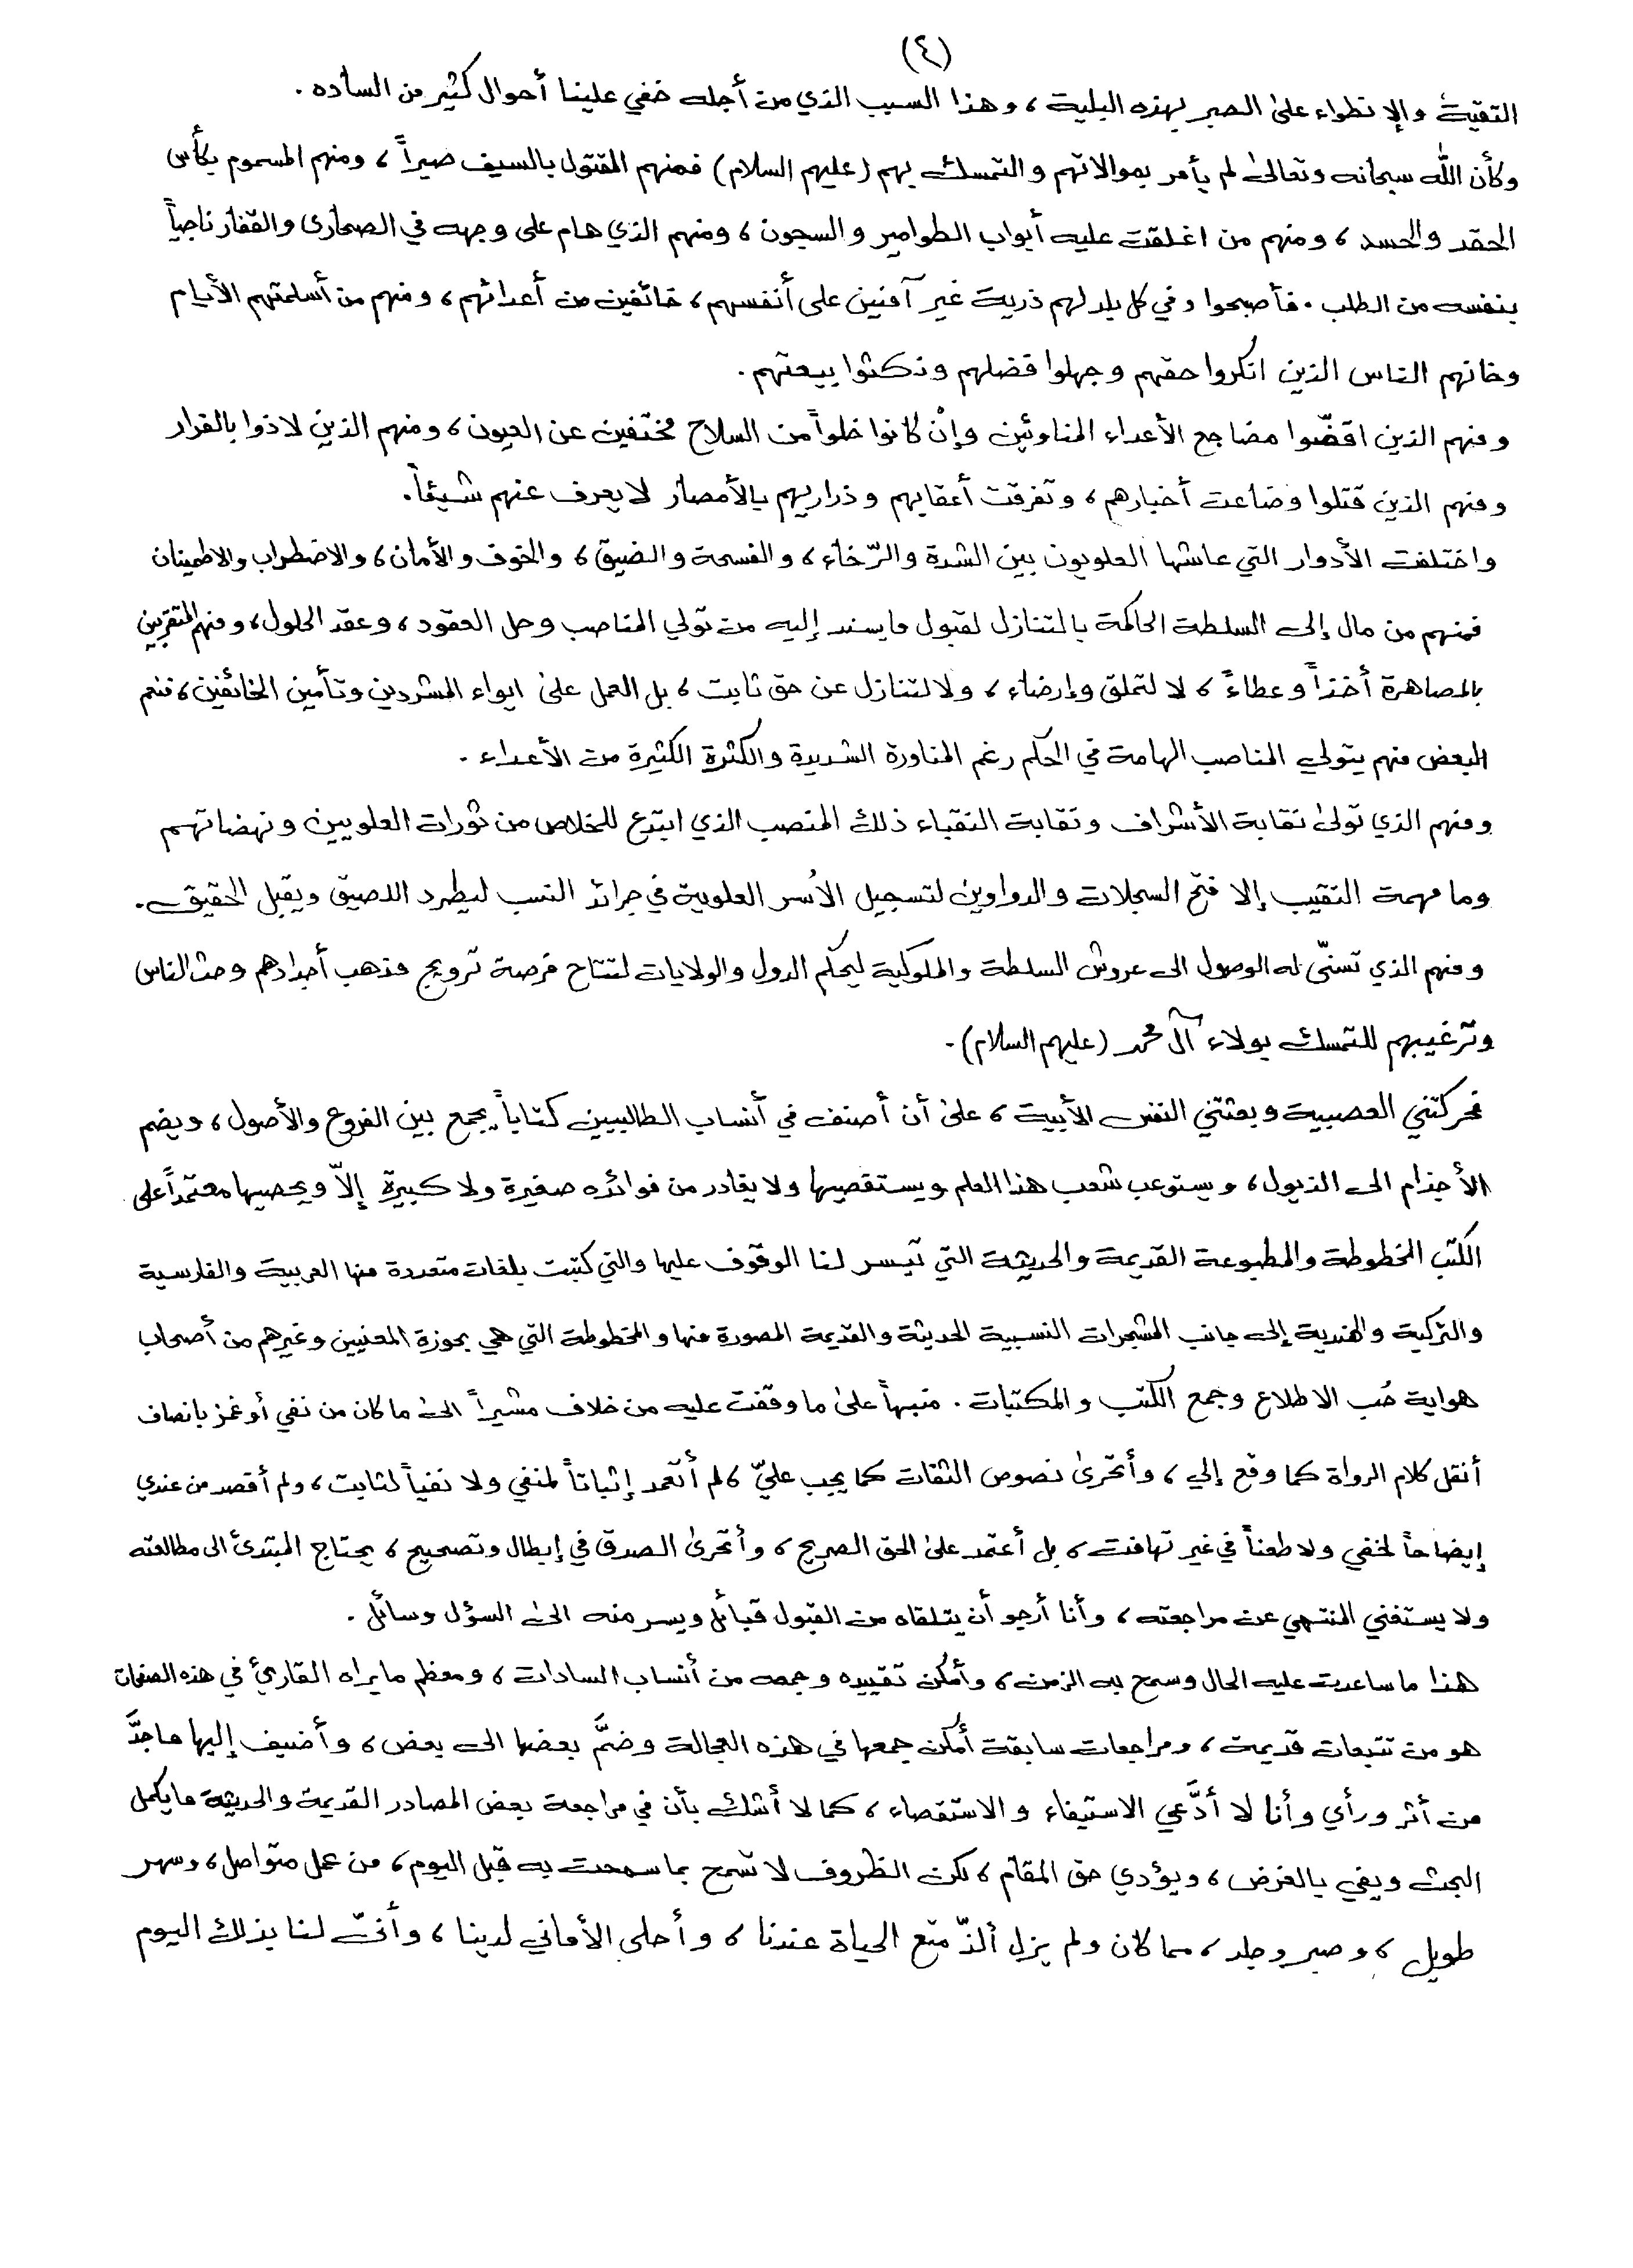 (٤)
التقية والإنطواء على الصبر بهذه البلية ، وهذا السبب الذي من أجله خفي علينا أحوال كثير من السادة .
وكأن الله سبحانه وتعالى لم يأمر بموالاتهم والتمسك بهم (عليهم السلام) فمنهم المقتول بالسيف صبراً ، ومنهم المسموم بكأس
الحقد والحسد ، ومنهم من اغلقت عليه أبواب الطوامير والسجون ، ومنهم الذي هام على وجهه في الصحارى والقفار ناجياً
بنفسه من الطلب . فأصبحوا وفي كل بلد لهم ذرية غير آمنين على أنفسهم ، خائفين من أعدائهم ، ومنهم من أسلمتهم الأيام
وخانهم الناس الذين انكروا حقهم وجهلوا فضلهم ونكثوا بيعتهم .
ومنهم الذين اقضّوا مضاجع الأعداء المناوئين وإنْ كانوا خلواً من السلاح مختفين عن العيون ، ومنهم الذين لاذوا بالفرار
ومنهم الذين قتلوا وضاعت أخبارهم ، وتفرقت أعقابهم وذراريهم بالأمصار لا يعرف عنهم شيئاً .
واختلفت الأدوار التي عاشها العلويون بين الشدة والرّخاء ، والفسحة والضيق ، والخوف والأمان ، والاضطراب والاطمينان
فمنهم من مال إلى السلطة الحاكمة بالتنازل لقبول ما يسند إليه من تولي المناصب وحل العقود ، وعقد الحلول ، ومنهم المتقربين
بالمصاهرة أخذاً وعطاءً ، لا لتملق وإرضاء ، ولا لتنازل عن حق ثابت ، بل العمل على ايواء المشردين وتأمين الخائفين ، فنعم
البعض منهم يتولى المناصب الهامة في الحكم رغم المناورة الشديدة والكثرة الكثيرة من الأعداء .
ومنهم الذي تولى نقابة الأشراف ونقابة النقباء ذلك المنصب الذي ابتدع للخلاص من ثورات العلويين ونهضاتهم
وما مهمة النقيب إلا فتح السجلات والدواوين لتسجيل الأسر العلوية في جرائد النسب ليطرد اللصيق ويقبل الحقيق .
ومنهم الذي تسنّى له الوصول الى عروش السلطة والملوكية ليحكم الدول والولايات لتتاح فرصة ترويج مذهب أجدادهم وحث الناس
وترغيبهم للتمسك بولاء آل محمد (عليهم السلام) .
فحركتني العصبية وبعثتني النفس الأبية ، على أن أصنف في أنساب الطالبيين كتاباً يجمع بين الفروع والأصول ، ويضم
الأجذام الى الذيول ، ويستوعب شعب هذا العلم ويستقصيها ولا يغادر من فوائده صغيرة ولا كبيرة إلاّ ويحصيها معتمداً على
الكتب المخطوطة والمطبوعة القديمة والحديثة التي تيسر لنا الوقوف عليها والتي كتبت بلغات متعددة منها العربية والفارسية
والتركية والهندية إلى جانب المشجرات النسبية الحديثة والقديمة المصورة منها والمخطوطة التي هي بحوزة المعنيين وغيرهم من أصحاب
هواية حُب الاطلاع وجمع الكتب والمكتبات . منبهاً على ما وقفت عليه من خلاف مشيراً الى ما كان من نفي أو غمز بانصاف
أنقل كلام الرواة كما وقع إلي ، وأتحرى نصوص الثقات كما يجب عليّ ، لم أتعمد إثباتاً لمنفي ولا نفياً لثابت ، ولم أقصد من عندي
إيضاحاً لخفي ولا طعناً في غير تهافت ، بل أعتمد على الحق الصريح ، وأتحرى الصدق في إبطال وتصحيح ، يحتاج المبتدئ الى مطالعته
ولا يستغني المنتهي عن مراجعته ، وأنا أرجو أن يتلقاه من القبول قبائل ويسر منه الى السؤل وسائل .
هذا ما ساعدت عليه الحال وسمح به الزمن ، وأمكن تقييده وجمعه من أنساب السادات ، ومعظم ما يراه القارئ في هذه الصفحات
هو من تتبعات قديمة ، ومراجعات سابقة أمكن جمعها في هذه العجالة وضمَّ بعضها الى بعض ، وأضيف إليها ما جدَّ
من أثر ورأي وأنا لا أدَّعي الاستيفاء والاستقصاء ، كما لا أشك بأن في مراجعة بعض المصادر القديمة والحديثة ما يكمل
البحث ويفي بالغرض ، ويؤدي حق المقام ، لكن الظروف لا تسمح بما سمحت به قبل اليوم ، من عمل متواصل ، وسهر
طويل ، وصبر وجلد ، مما كان ولم يزل ألذّ متع الحياة عندنا ، وأحلى الأماني لدينا ، وأنىّ لنا بذلك اليوم